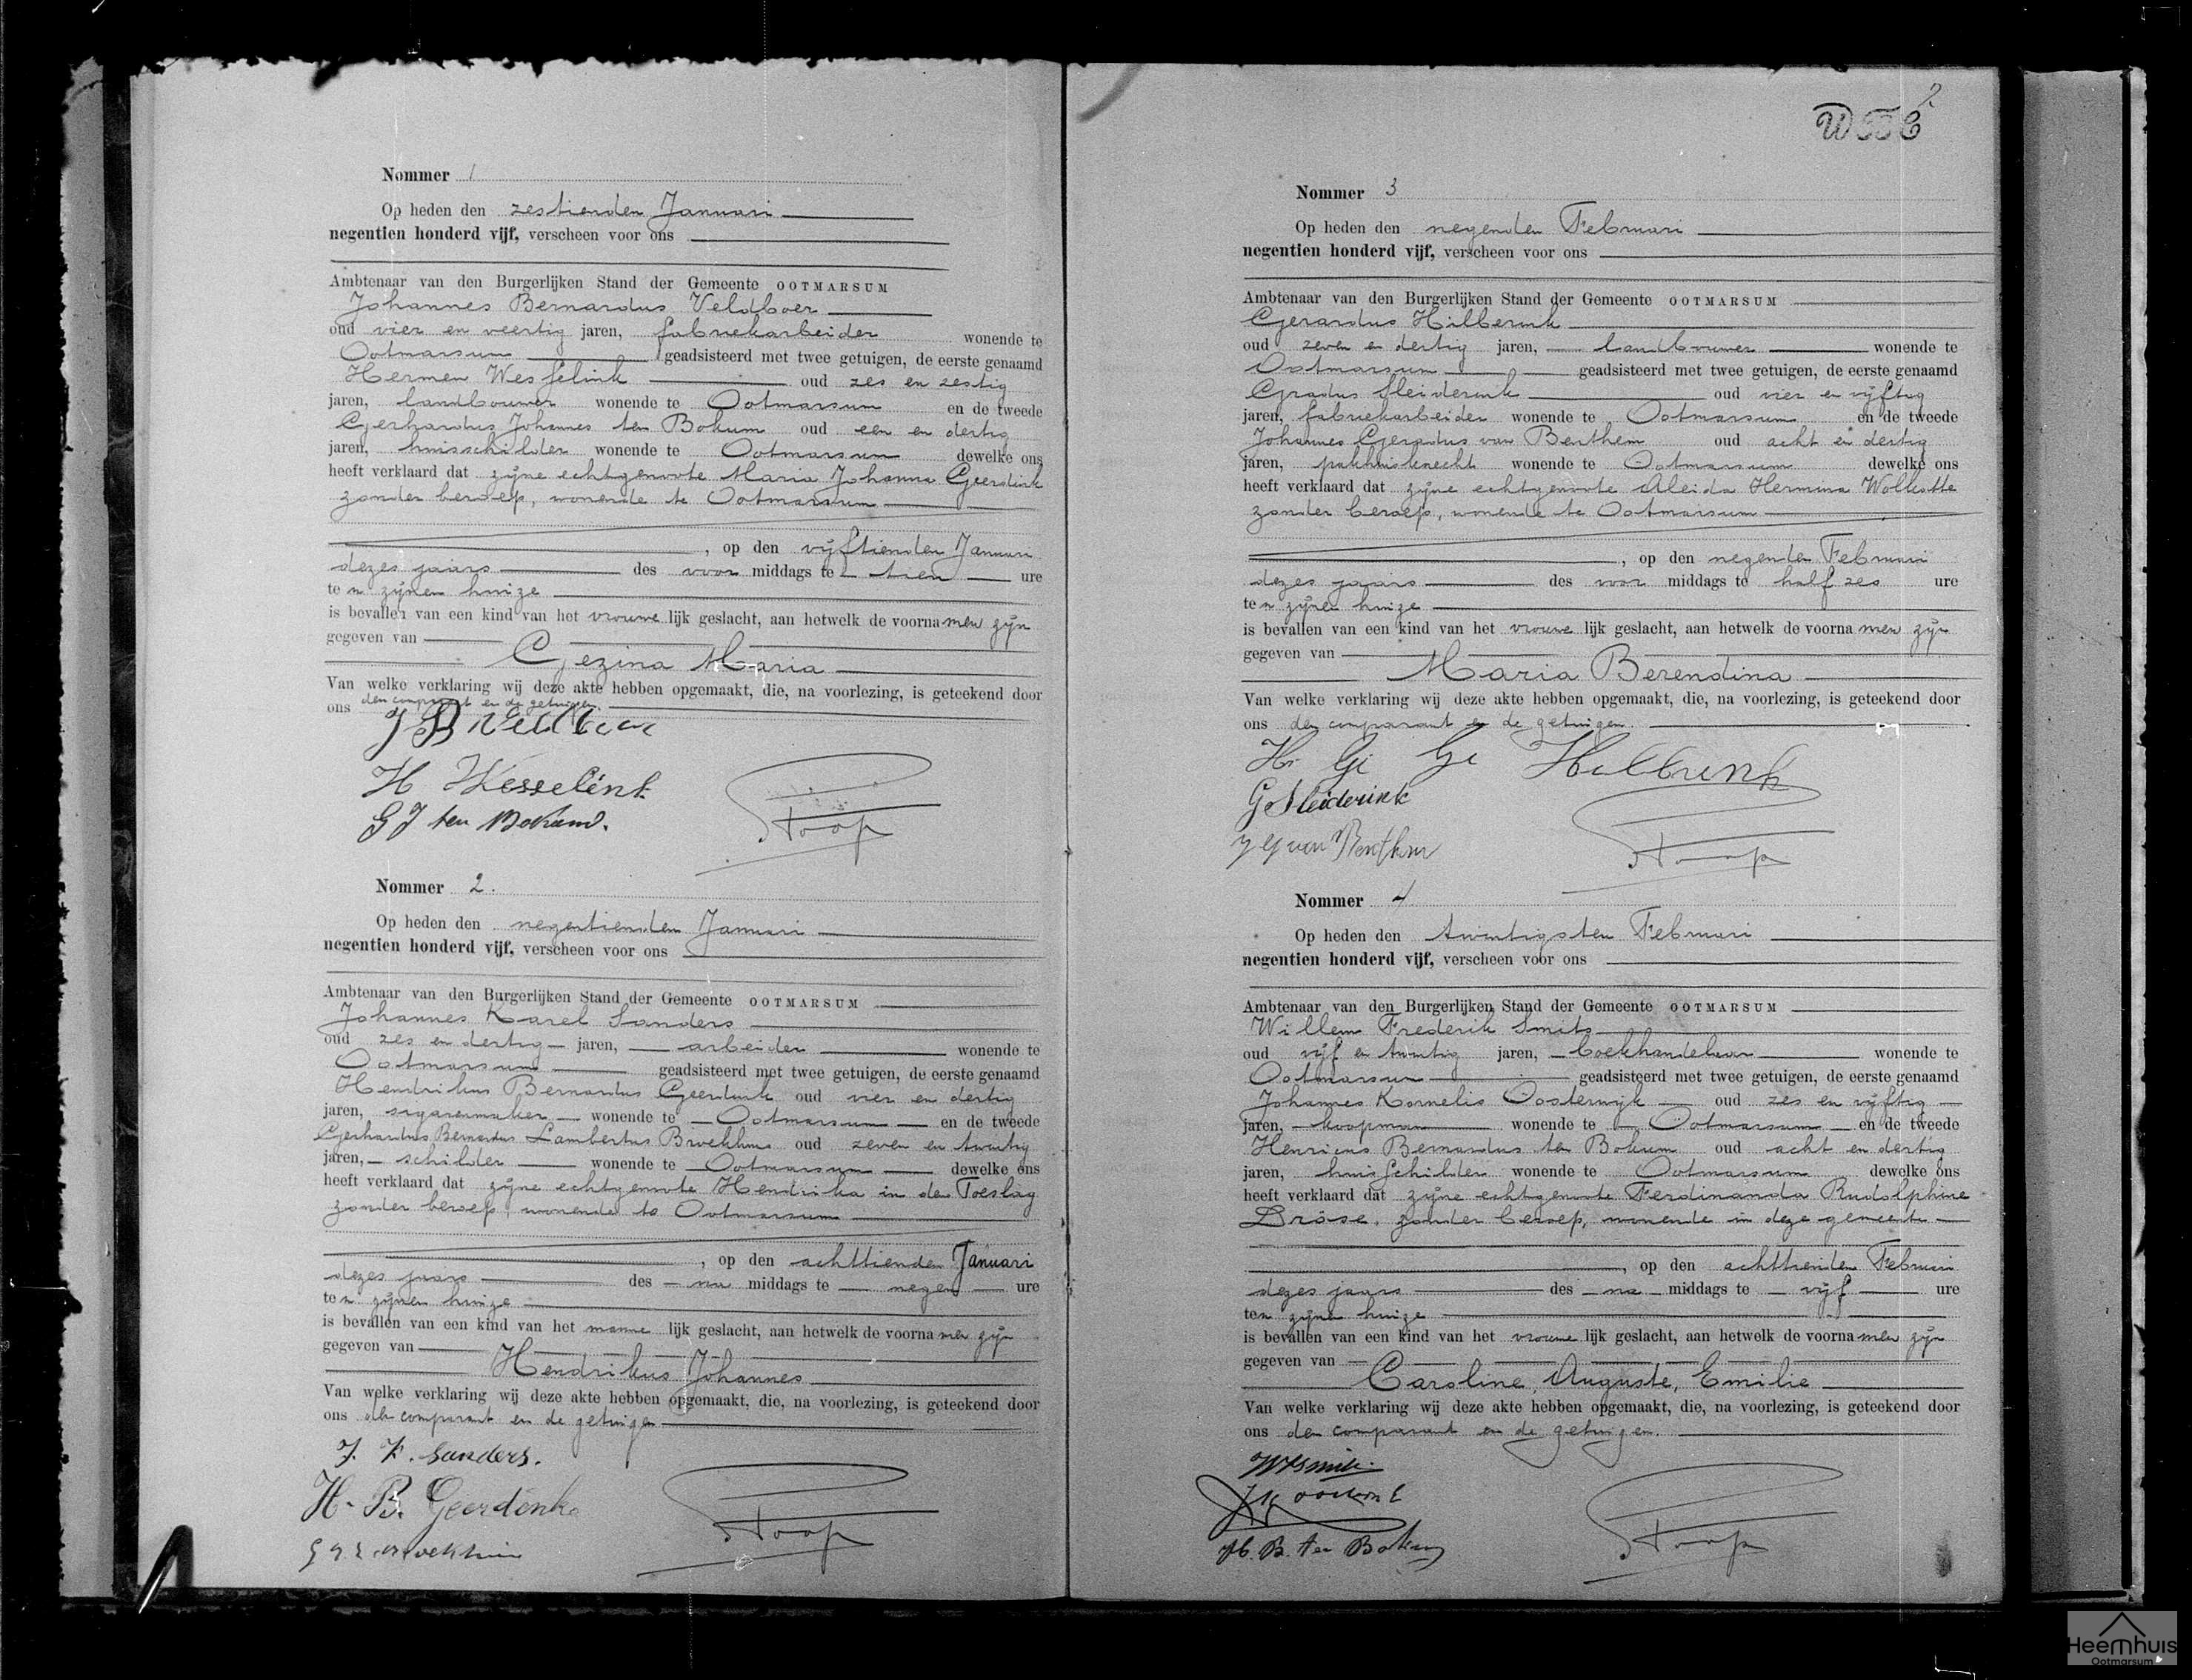 Nommer 1
Op heden den zestienden Januari
negentien honderd vijf, verscheen voor ons
Ambtenaar van den Burgerlijken Stand der Gemeente OOTMARSUM
Johannes Bernardus Veldboer
oud vier en veertig jaren, fabriekarbeider wonende te
Ootmarsum geadsisteerd met twee getuigen, de eerste genaamd
Hermen Wesselink oud zes en zestig
jaren, landbouwer wonende te Ootmarsum en de tweede
Gerhardus Johannes ten Bokum oud een en dertig
jaren, huisschilder wonende te Ootmarsum dewelke ons
heeft verklaard dat zijne echtgenoote Maria Johanna Geerdink
zonder beroep, wonende te Ootmarsum
, op den vijftienden Januari
dezes jaars des voor middags te tien ure
te n zijnen huize
is bevallen van een kind van het vrouwe lijk geslacht, aan hetwelk de voorna men zijn
gegeven van
Gezina Maria
Van welke verklaring wij deze akte hebben opgemaakt, die, na voorlezing, is geteekend door
ons den comparant en de getuigen.
J B Veldboer
H Wesselink
G J ten Bokum.
Stoop
Nommer 2.
Op heden den negentienden Januari
negentien honderd vijf, verscheen voor ons
Ambtenaar van den Burgerlijken Stand der Gemeente OOTMARSUM
Johannes Karel Sanders
oud zes en dertig jaren, arbeider wonende te
Ootmarsum geadsisteerd met twee getuigen, de eerste genaamd
Hendrikus Bernardus Geerdink oud vier en dertig
jaren, sigarenmaker wonende te Ootmarsum en de tweede
Gerhardus Bernardus Lambertus Broekhuis oud zeven en twintig
jaren, schilder wonende te Ootmarsum dewelke ons
heeft verklaard dat zijne echtgenoote Hendrika in den Toeslag
zonder beroep, wonende te Ootmarsum
, op den achttienden Januari
dezes jaars des na middags te negen ure
te n zijnen huize
is bevallen van een kind van het manne lijk geslacht, aan hetwelk de voorna men zijn
gegeven van
Hendrikus Johannes
Van welke verklaring wij deze akte hebben opgemaakt, die, na voorlezing, is geteekend door
ons den comparant en de getuigen
J. K. Sanders.
H. B. Geerdink
Stoop
2
Nommer 3
Op heden den negenden Februari
negentien honderd vijf, verscheen voor ons
Ambtenaar van den Burgerlijken Stand der Gemeente OOTMARSUM
Gerardus Hilberink
oud zeven en dertig jaren, landbouwer wonende te
Ootmarsum geadsisteerd met twee getuigen, de eerste genaamd
Gradus Sleiderink oud vier en vijftig
jaren, fabriekarbeider wonende te Ootmarsum en de tweede
Johannes Gerardus van Benthem oud acht en dertig
jaren, pakhuisknecht wonende te Ootmarsum dewelke ons
heeft verklaard dat zijne echtgenoote Aleida Hermina Wolkotte
zonder beroep, wonende te Ootmarsum
, op den negenden Februari
dezes jaars des voor middags te half zes ure
te n zijnen huize
is bevallen van een kind van het vrouwe lijk geslacht, aan hetwelk de voorna men zijn
gegeven van
Maria Berendina
Van welke verklaring wij deze akte hebben opgemaakt, die, na voorlezing, is geteekend door
ons den comparant en de getuigen.
G Sleiderink
J G van Benthem
Stoop
Nommer 4
Op heden den twintigsten Februari
negentien honderd vijf, verscheen voor ons
Ambtenaar van den Burgerlijken Stand der Gemeente OOTMARSUM
Willem Frederik Smits
oud vijf en twintig jaren, boekhandelaar wonende te
Ootmarsum geadsisteerd met twee getuigen, de eerste genaamd
Johannes Kornelis Oosterwijk oud zes en vijftig
jaren, koopman wonende te Ootmarsum en de tweede
Henricus Bernardus ten Bokum oud acht en dertig
jaren, huisschilder wonende te Ootmarsum dewelke ons
heeft verklaard dat zijne echtgenoote Ferdinanda Rudolphine
Dröse, zonder beroep, wonende in deze gemeente
, op den achttienden Februari
dezes jaars des na middags te vijf ure
te n zijnen huize
is bevallen van een kind van het vrouwe lijk geslacht, aan hetwelk de voorna men zijn
gegeven van
Caroline, Auguste, Emilie
Van welke verklaring wij deze akte hebben opgemaakt, die, na voorlezing, is geteekend door
ons den comparant en de getuigen.
WFSmits.
H. B. ten Bokum
Stoop
Heemhuis
Ootmarsum